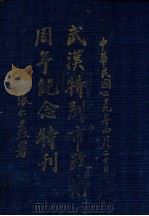 中華民國十九年四月二十日
武漢特別市政府
周年紀念特刊
張仁蠡署